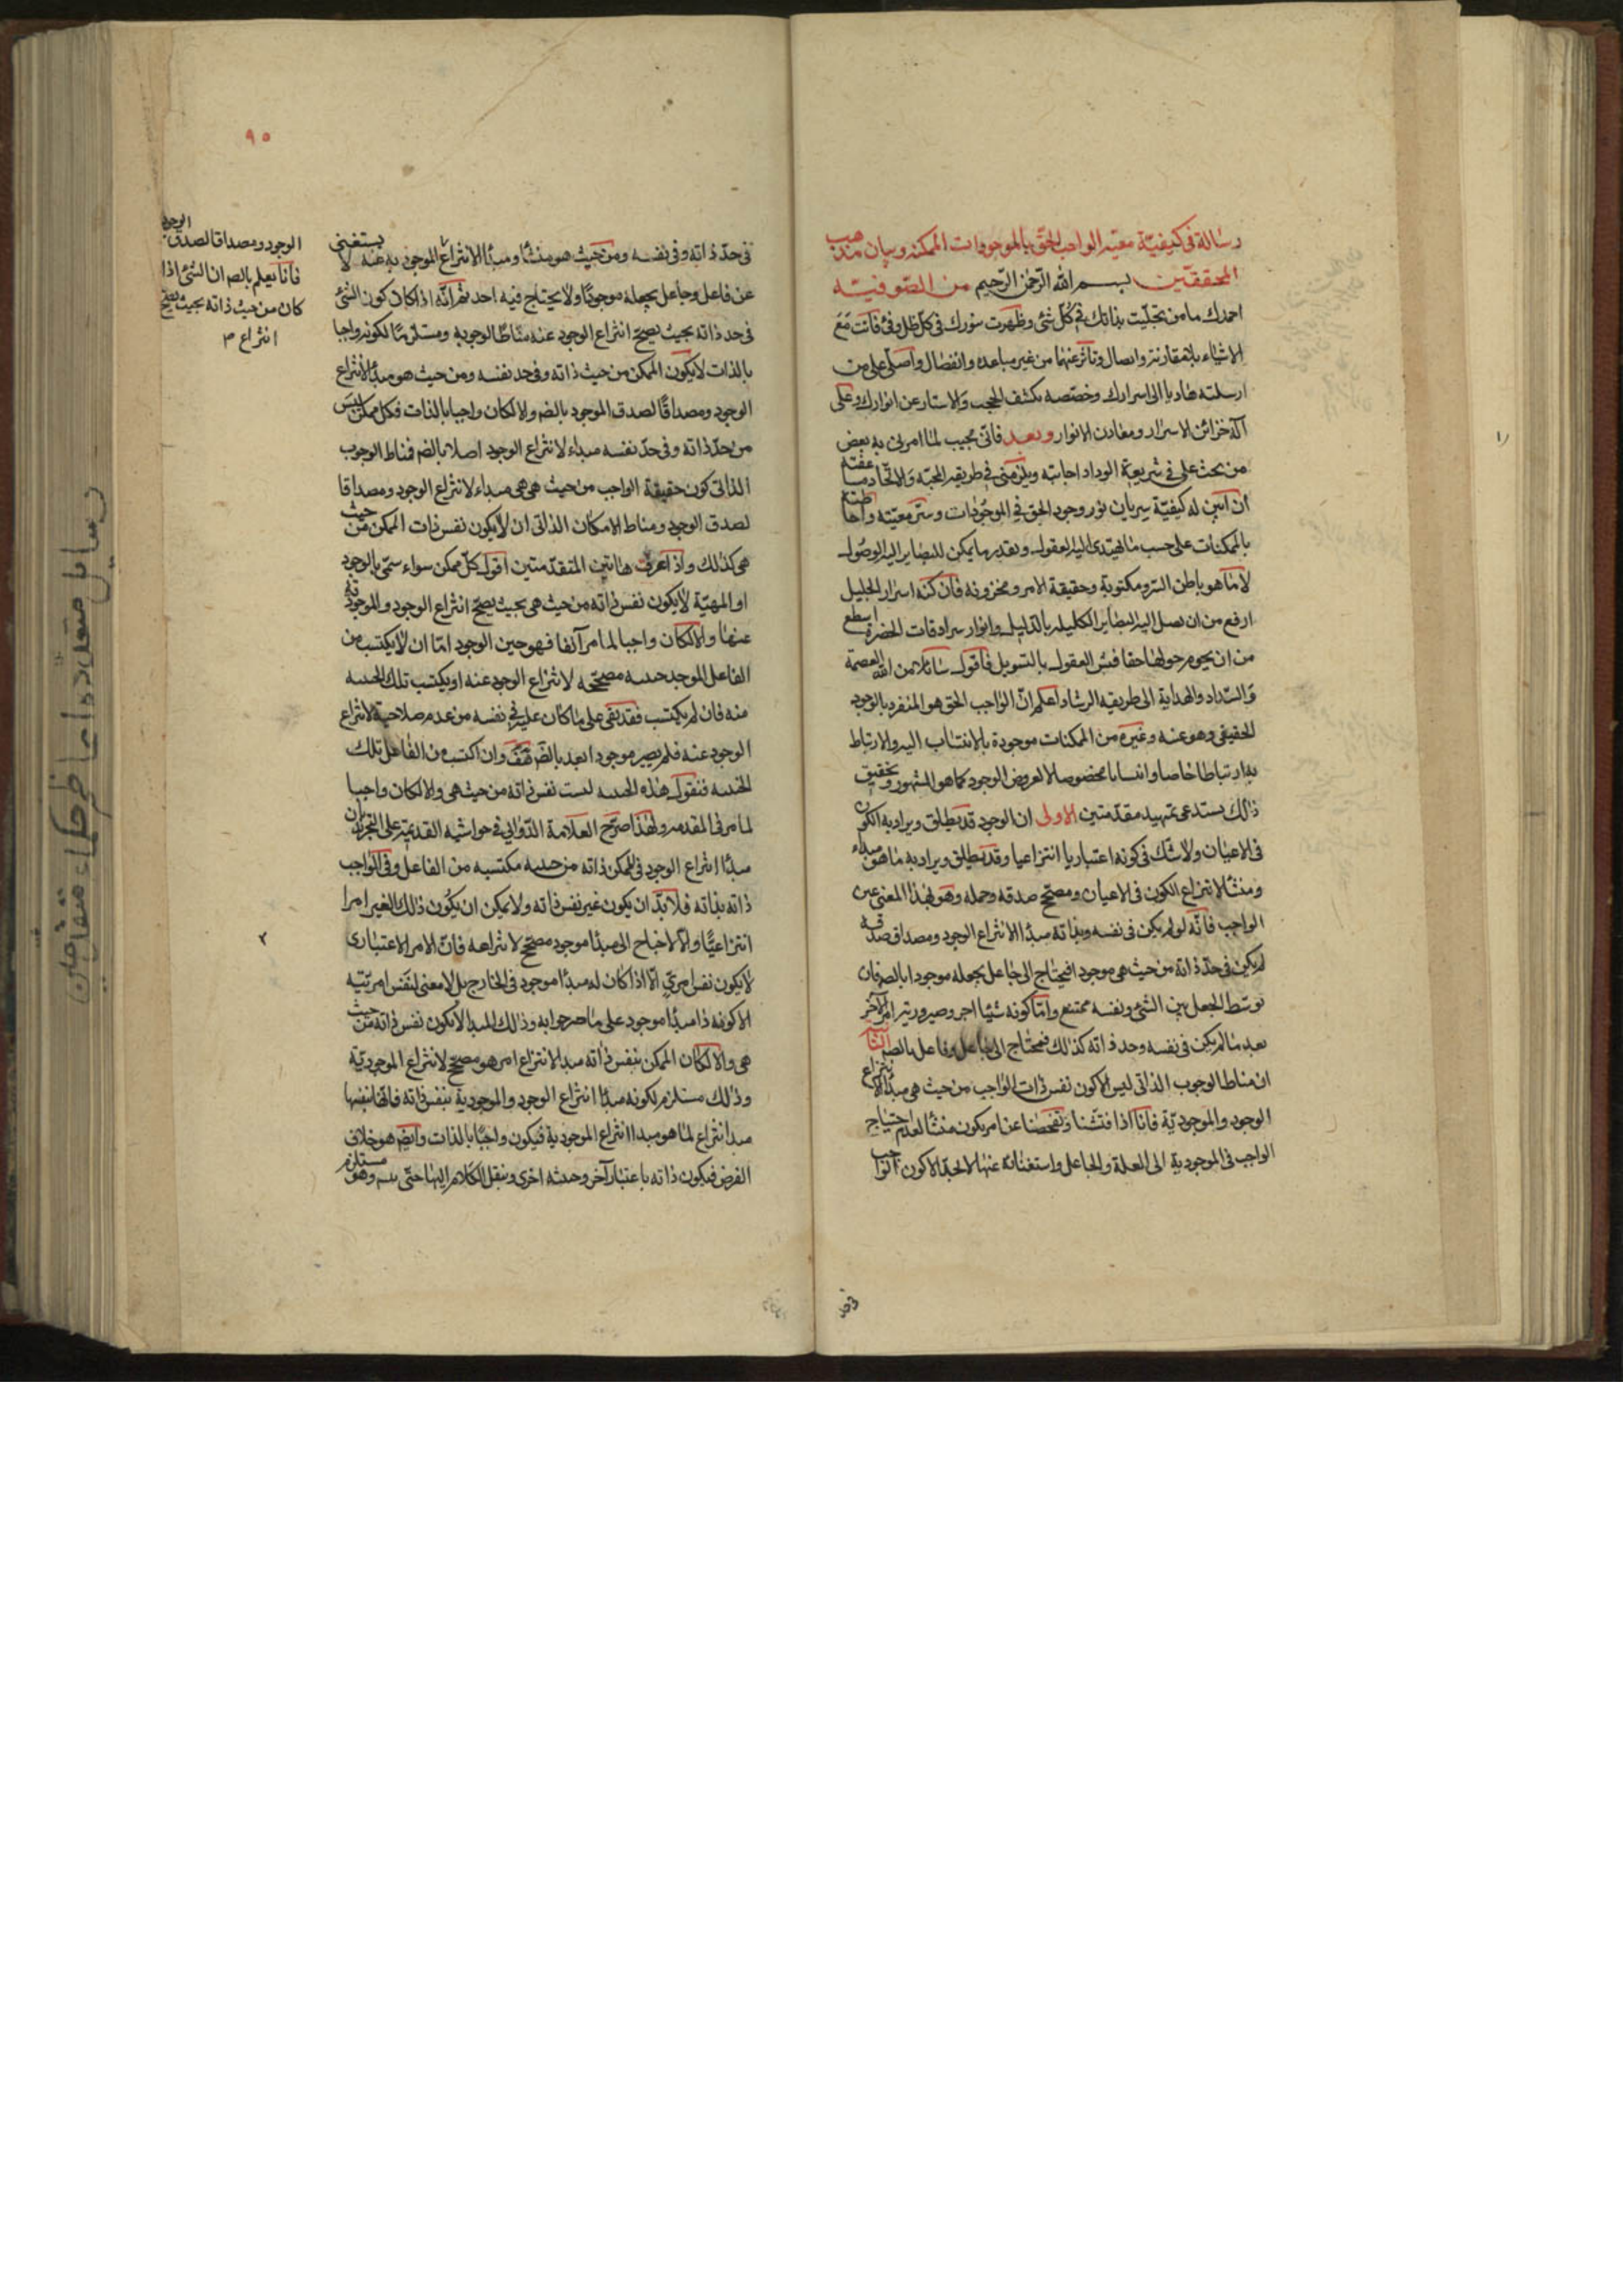 رسالة فى كيفيّة معيّة الواجب الحقّ بالموجودات الممكنة وبيان مذهب
المحققين بسم الله الرّحمن الرّحيم من الصّوفيّة
احمدك يا من تجلّيت بذاتك فى كلّ شئ وظهرت بنورك فى كلّ ظل وفئ فانت مع
الاشياء بلا مقارنة واتصال وتأثر عنها من غير مباعدة وانفصال واصلّى على من
ارسلته هاديا الى اسرارك وخصّصه بكشف الحجب والاستار عن انوارك وعلى
آله خزائن الاسرار ومعادن الانوار وبعد فانّى مجيب لما امرنى به بعض
من يحث على فى شريعة الوداد اجابته ويلزمنى فى طريقة المحبّة والاتّحاد
ان ابيّن له كيفيّة سريان نور وجود الحق فى الموجودات وسرّ معيّته واحاطته
بالممكنات على حسب ما يهتدى اليه العقول وبقدر ما يمكن للبصاير اليه الوصول
لا ما هو باطن السرّ ومكتوبه وحقيقة الامر ومخزونه فان كنه اسرار الجليل
ارفع من ان يصل اليه البصاير الكليلة بالدّليل وانوار سرادقات الحضرة اسطع
من ان يحوم حولها العقول بالتسويل فاقول سائلا من الله العصمة
والسّداد والهداية الى طريقه الرشاد اعلم انّ الواجب الحق هو المنفرد بالوجود
الحقيقى وهو عنه وغيره من الممكنات موجودة بالانتساب اليه والارتباط
به ارتباطا خاصا وانتسابا مخصوصا لا لعروض الوجود كما هو المشهور وتحقيق
ذلك يستدعى تمهيد مقدّمتين الاولى ان الوجود قد يطلق ويراد به الكون
فى الاعيان ولا شك فى كونه اعتباريا انتزاعيا وقد يطلق ويراد به ما هو مبداء
ومنشأ لانتزاع الكون فى الاعيان ومصحّح صدقه وحمله وهو بهذا المعنى عين
الواجب فانّه لو لم يكن فى نفسه وبذاته مبدأ لانتزاع الوجود ومصداق صدقه
لم يكن فى حدّ ذاته من حيث هى موجود افيحتاج الى جاعل يجعله موجودا بالضرفان
توسّط الجعل بين الشئ ونفسه ممتنع وامّا كونه شيئا اخر وصيرورته امرا آخر
بعد ما لم يكن فى نفسه وحد ذاته كذلك فيحتاج الى جاعل وفاعل بالضر الثا
ان مناط الوجوب الذاتى ليس الا كون نفس ذات الواجب من حيث هى مبدأ لانتزاع
الوجود والموجوديّة فانا اذا فتشنا وتفحصنا عن امر يكون منشأ لعدم احتياج
الواجب فى الموجودية الى العلة والجاعل واستغنائه عنها لا نجد الا كون الواجب
٩٥
فى حدّ ذاته وفى نفسه ومن حيث هو منشأ ومبدأ لانتزاع الموجوديه عنه يستغنى
عن فاعل وجاعل يجعله موجودًا ولا يحتاج فيه احد ثمّ انّه اذا كان كون الشئ
فى حد ذاته بحيث يصحّ انتزاع الوجود عنه مناطا لوجوبه ومستلزما لكونه واجبا
بالذات لا يكون الممكن من حيث ذاته وفى حد نفسه ومن حيث هو مبدأ لانتزاع
الوجود ومصداقًا لصدق الموجود بالضر والا لكان واجبا بالذات فكل ممكن ليس
من حدّ ذاته وفى حدّ نفسه مبداء لانتزاع الوجود اصلا بالضر فمناط الوجوب
الذاتى كون حقيقة الواجب من حيث هى هى مبداء لانتزاع الوجود ومصداقا
لصدق الوجود ومناط الامكان الذاتى ان لا يكون نفس ذات الممكن من حيث
هى كذلك واذا عرفت هاتين المتقدّمتين اقول كلّ ممكن سواء سمّى بالوجود
او المهيّة لا يكون نفس ذاته من حيث هى بحيث يصحّ انتزاع الوجود والموجوديّة
عنها والا لكان واجبا لما مر آنفا فهو حين الوجود امّا ان لا يكتسب من
الفاعل الموجد حيثية مصحّحة لانتزاع الوجود عنه او يكتسب تلك الحيثية
منه فان لم يكتسب فقد بقى على ما كان عليه فى نفسه من عدم صلاحية لانتزاع
الوجود عنه فلم يصير موجودا بعد بالضر هف وان اكتسب من الفاعل تلك
الحيثية فنقول هذه الحيثية ليست نفس ذاته من حيث هى والا لكان واجبا
لما مر فى المقدمة ولهذا صرّح العلّامة الدّوانى فى حواشيه القديمة على التجريد ان
مبدأ انتزاع الوجود فى الممكن ذاته من حيثية مكتسبة من الفاعل وفى الواجب
ذاته بذاته فلا بدّ ان يكون غير نفس ذاته ولا يمكن ان يكون ذلك الغير امرا
انتزاعيًّا والا لاحتاج الى مبدأ موجود مصحّح لانتزاعه فانّ الامر الاعتبارى
لا يكون نفس امرىّ الّا اذا كان له مبدأ موجود فى الخارج بل لا معنى لنفس امريّته
الا كونه ذا مبدأ موجود على ما صرحوا به وذلك المبدا لا يكون نفس ذاته من حيث
هى والا لكان الممكن بنفس ذاته مبدا لانتزاع امر هو مصحّح لانتزاع الموجوديّة
وذلك مستلزم لكونه مبدأ انتزاع الوجود والموجودية بنفس ذاته فانها بنفسها
مبدا انتزاع لما هو مبدا انتزاع الموجودية فيكون واجبًا بالذات وايضم هو خلاف
الفرض فيكون ذاته باعتبار آخر وحيثية اخرى وينقل الكلام اليها حتّى وهو مستلزم
الوجود
الوجود ومصداقا لصدق
فانا نعلم بالضر ان الشئ اذا
كان من حيث ذاته بحيث يصح
انتزاع
٢
رسايل متعدّده از حكماء متفاجين